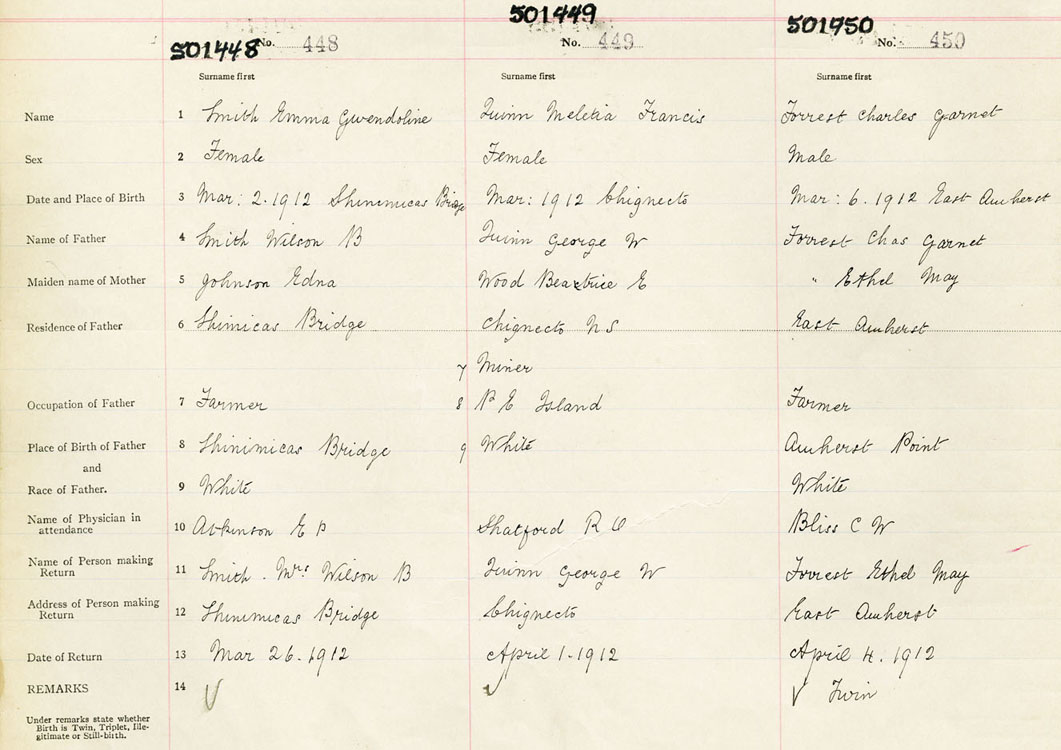 501448 No. 448 501449 No. 449 501450 No. 450
Surname first Surname first Surname first
Name 1 Smith Emma Gwendoline Quinn Meletia Francis Forrest Charles Garnet
Sex 2 Female Female Male
Date and Place of Birth 3 Mar: 2. 1912 Shinimicas Bridge Mar: 1912 Chignecto Mar: 6. 1912 East Amherst
Name of Father 4 Smith Wilson B Quinn George W Forrest Chas Garnet
Maiden name of Mother 5 Johnson Edna Wood Beatrice E " Ethel May
Residence of Father 6 Shimicas Bridge Chignecto N S East Amherst
7 Miner
Occupation of Father 7 Farmer 8 P E Island Farmer
Place of Birth of Father 8 Shinimicas Bridge 9 White Amherst Point
and
Race of Father. 9 White White
Name of Physician in
attendance 10 Atkinson E P Shatford R Bliss C W
Name of Person making
Return 11 Smith. Mrs Wilson B Quinn George W Forrest Ethel May
Address of Person making
Return 12 Shinimicas Bridge Chignecto East Amherst
Date of Return 13 Mar 26. 1912 April 1. 1912 April 4. 1912
REMARKS 14 Twin
Under remarks state whether
Birth is Twin, Triplet, Ille-
gitimate or Still-birth.